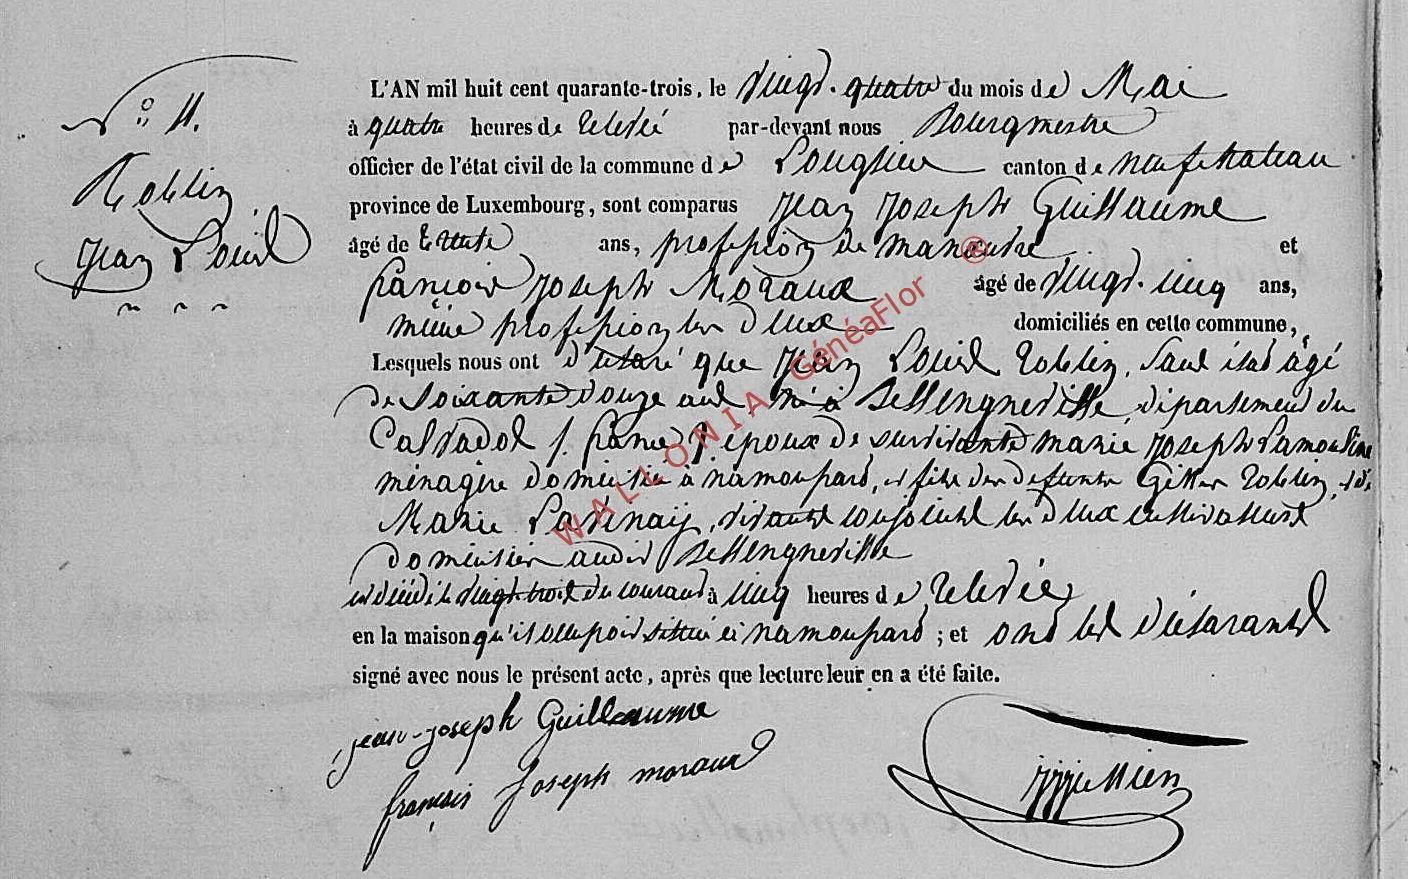 N° 11.
Roblin
Jean Louis
L'AN mil huit cent quarante-trois, le vingt-quatre du mois de Mai
à quatre heures de relevé par-devant nous Bourgmestre
officier de l'état civil de la commune de Longlier canton de neufchateau
province de Luxembourg, sont comparus Jean Joseph Guillaume
âgé de trente ans, profession de manœuvre et
françois Joseph Moraux âgé de vingt-cinq ans,
même profession les deux domiciliés en cette commune,
Lesquels nous ont déclaré que Jean Louis Roblin, âgé
de soixante douze ans né à département du
Calvados /: france :/ époux de survivante marie Joseph Lamouline
ménagère domicilié à namoussard, et fils des defunts Roblin, et de
Marie vivants conjoints les deux cultivateurs
domiciliés audit
est décédé le vingt-trois du courant à cinq heures de relevée
en la maison qu'il occupoit située à namoussard ; et ont les déclarants
signé avec nous le présent acte, après que lecture leur en a été faite.
jean-joseph Guillaume
françois joseph moraux
WALLONIA GénéaFlor ®